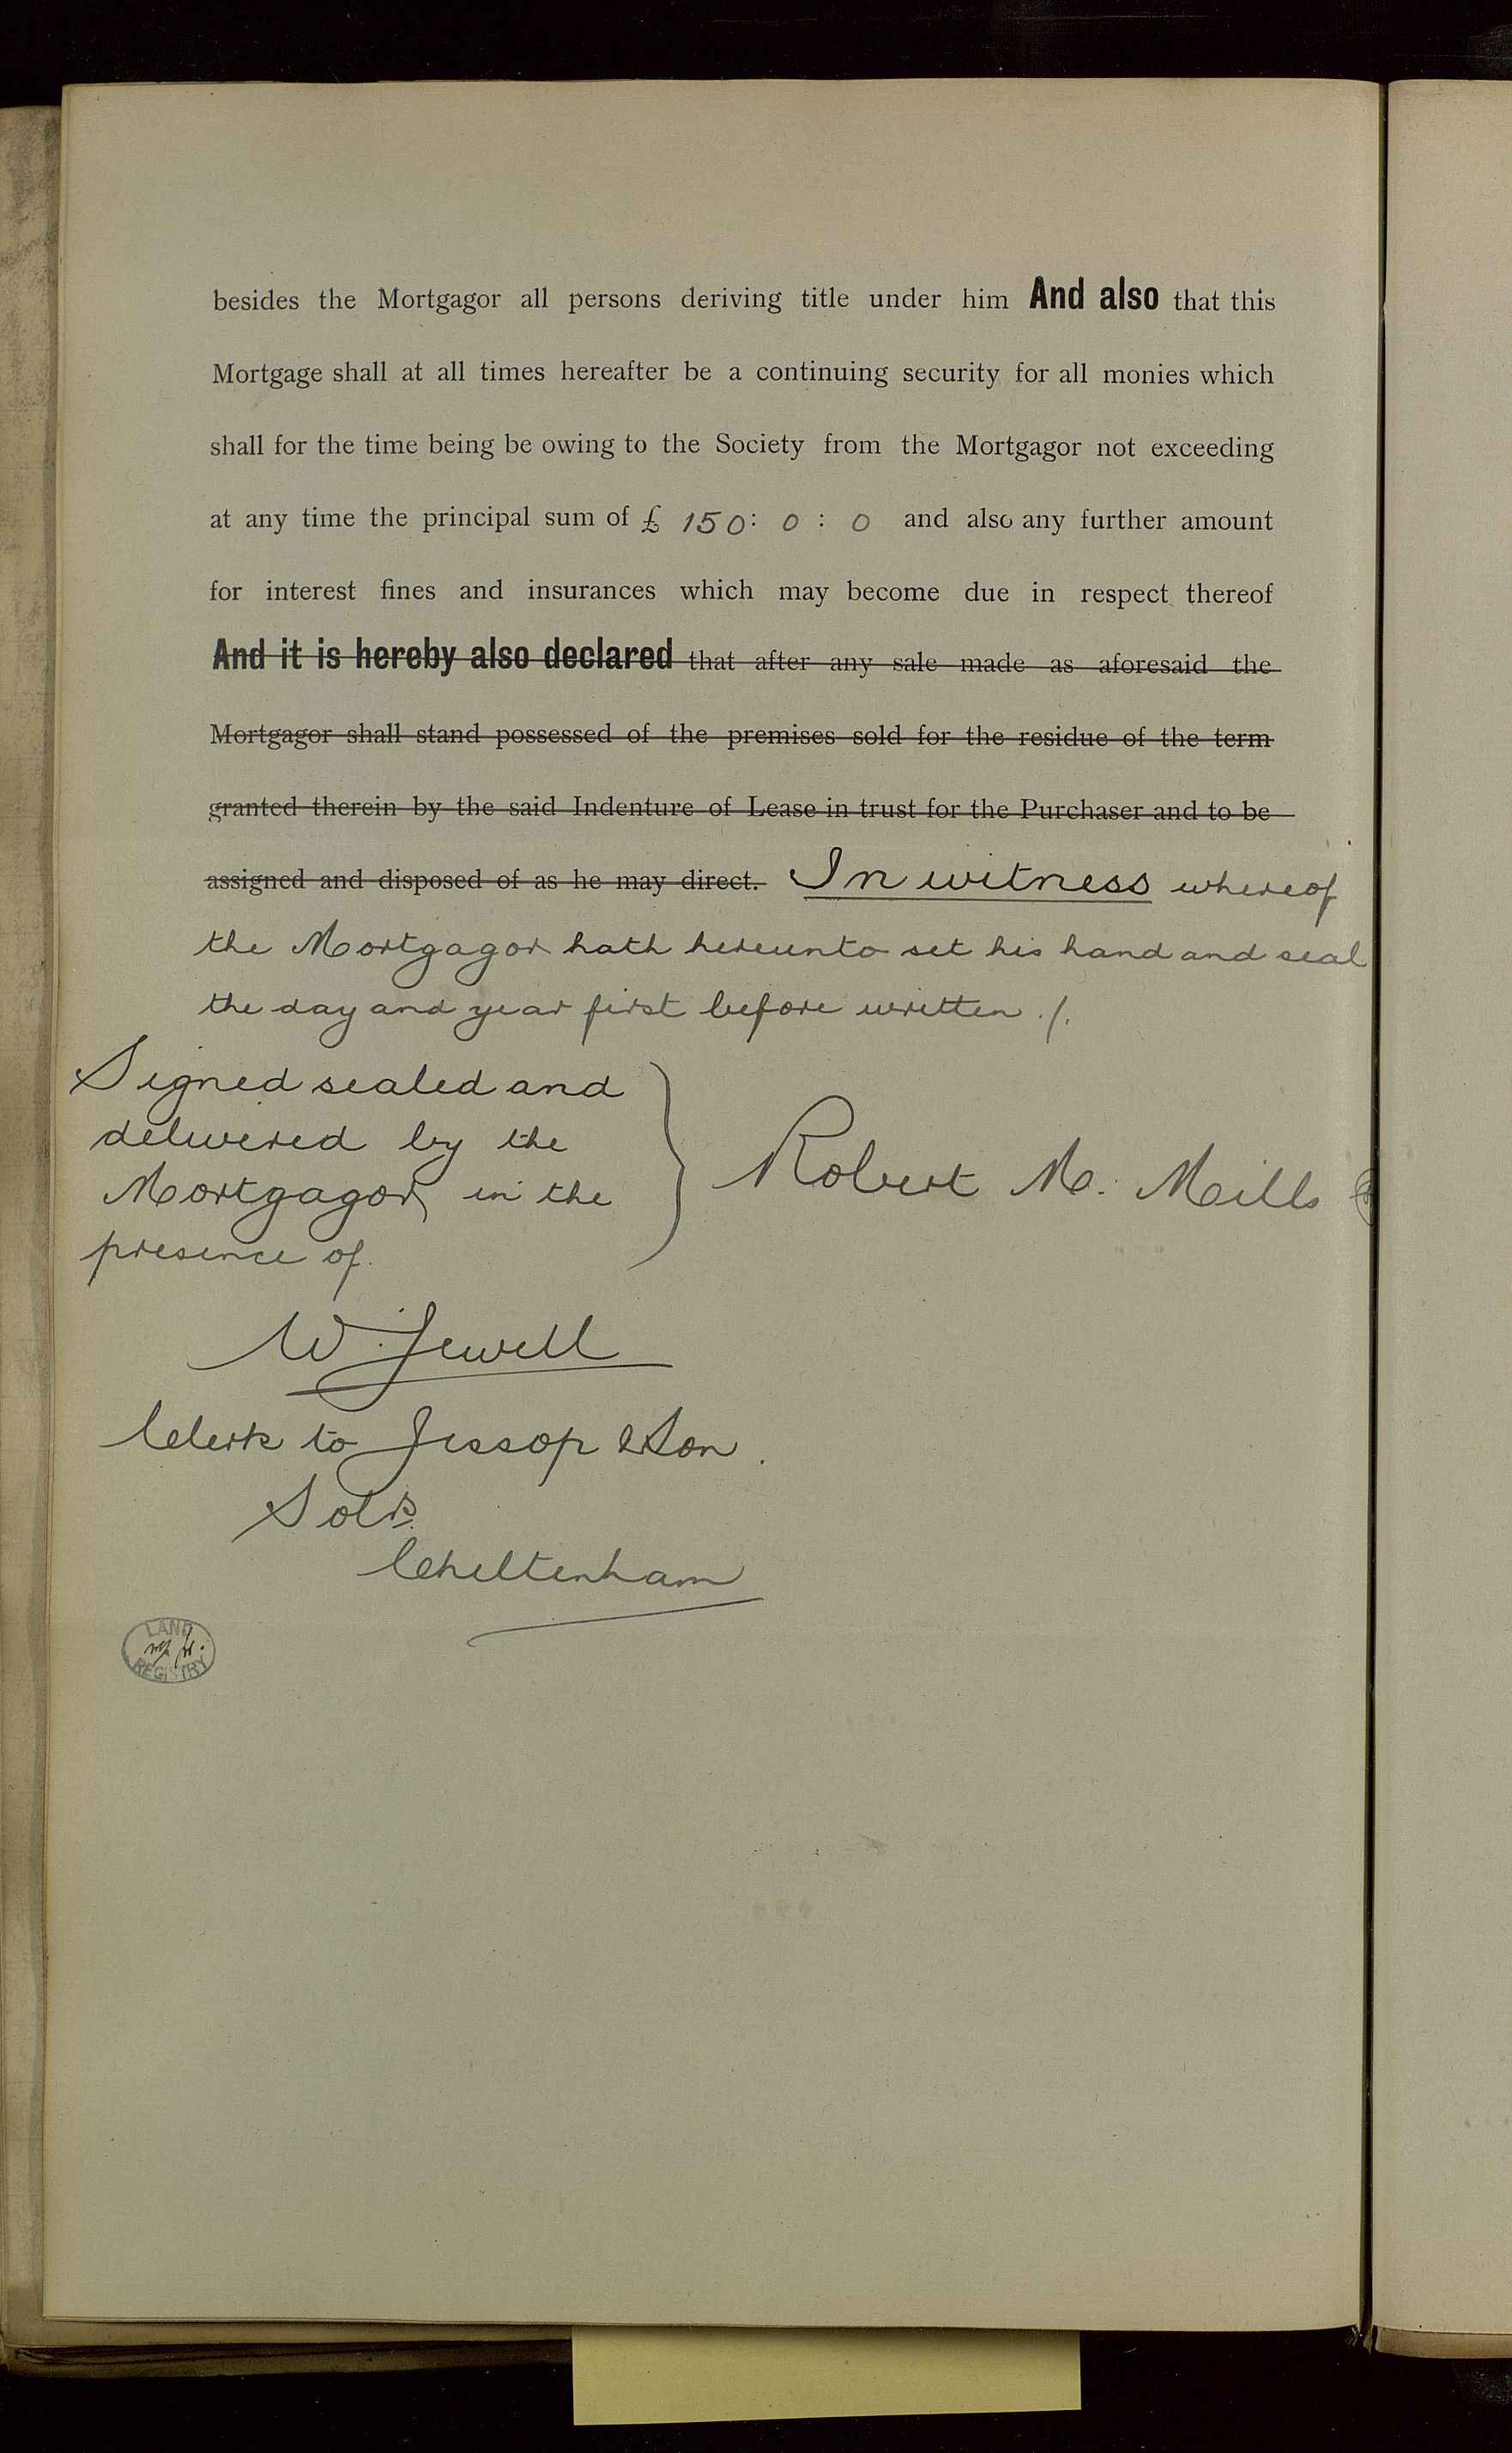 besides the Mortgagor all persons deriving title under him And also that this
Mortgage shall at all times hereafter be a continuing security for all monies which
shall for the time being be owing to the Society from the Mortgagor not exceeding
at any time the principal sum of £ 150: 0 : 0 and also any further amount
for interest fines and insurances which may become due in respect thereof
And it is hereby also declared that after any sale made as aforesaid the
Mortgagor shall stand possessed of the premises sold for the residue of the term
granted therein by the said Indenture of Lease in trust for the Purchaser and to be
assigned and disposed of as he may direct. In witness whereof
the Mortgagor hath hereunto set his hand and seal
the day and year first before written ./.
Signed sealed and
delivered by the
Mortgagor in the
presence of.
Robert M. Mills
W. Jewell
Clerk to Jessop & Son.
Solrs.
Cheltenham
LAND
REGISTRY